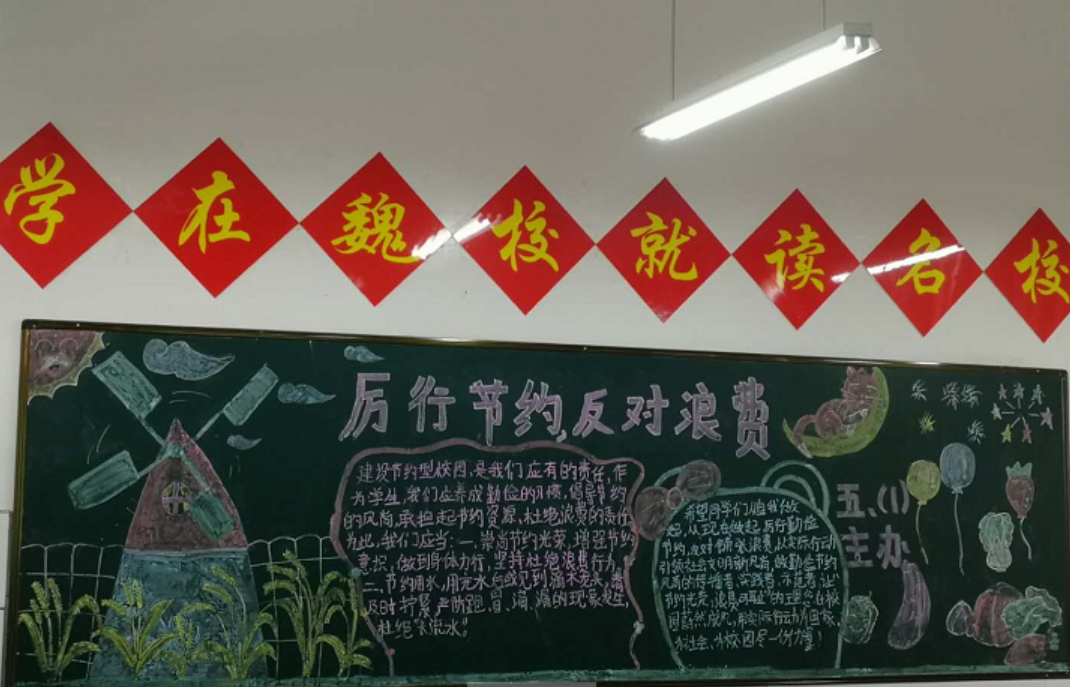 学在魏校就读名校
厉行节约,反对浪费
建设节约型校园,是我们应有的责任,作
为学生,我们应养成勤俭的习惯,倡导节约
的风尚,承担起节约资源,杜绝浪费的责任
为此,我们应当:一、崇尚节约光荣,增强节约
意识,做到身体力行,坚持杜绝浪费行为,
二、节约用水,用完水后或见到滴水龙头,
及时拧紧,严防跑、冒、滴、漏的现象发生,
杜绝“长流水”。
希望同学们从自我做
起,从现在做起,厉行勤俭
节约,反对铺张浪费,从实际行动
引领社会文明新风尚,做勤俭节约
风尚的传播者、实践者、示范者,让“
节约光荣,浪费可耻”的理念在校
园蔚然成风,用实际行动为国家
和社会、为校园尽一份力量!
五、(1)
主办